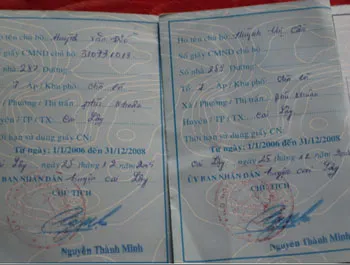 Họ tên chủ hộ: Huỳnh Văn
Số giấy CMND chủ hộ: 310771013
Số nhà 287 Đường:
Tổ: 7 Ấp / Khu phố: Chợ cũ
Xã / Phường / Thị trấn: phú Nhuận
Huyện / TP / TX: Cai Lậy
Thời hạn sử dụng giấy CN:
Từ ngày: 1/1/2006 đến 31/12/2008
Cai Lậy ngày 25 tháng 12 năm
ỦY BAN NHÂN DÂN huyện cai Lậy
CHỦ TỊCH
Nguyễn Thành Minh
Họ tên chủ hộ: Huỳnh Thị
Số giấy CMND chủ hộ:
Số nhà 289 Đường:
Tổ: 7 Ấp / Khu phố: Chợ cũ
Xã / Phường / Thị trấn: phú Nhuận
Huyện / TP / TX: Cai Lậy
Thời hạn sử dụng giấy CN:
Từ ngày: 1/1/2006 đến 31/12/2008
Cai Lậy ngày 25 tháng 12 năm
ỦY BAN NHÂN DÂN huyện cai Lậy
CHỦ TỊCH
Nguyễn Thành Minh